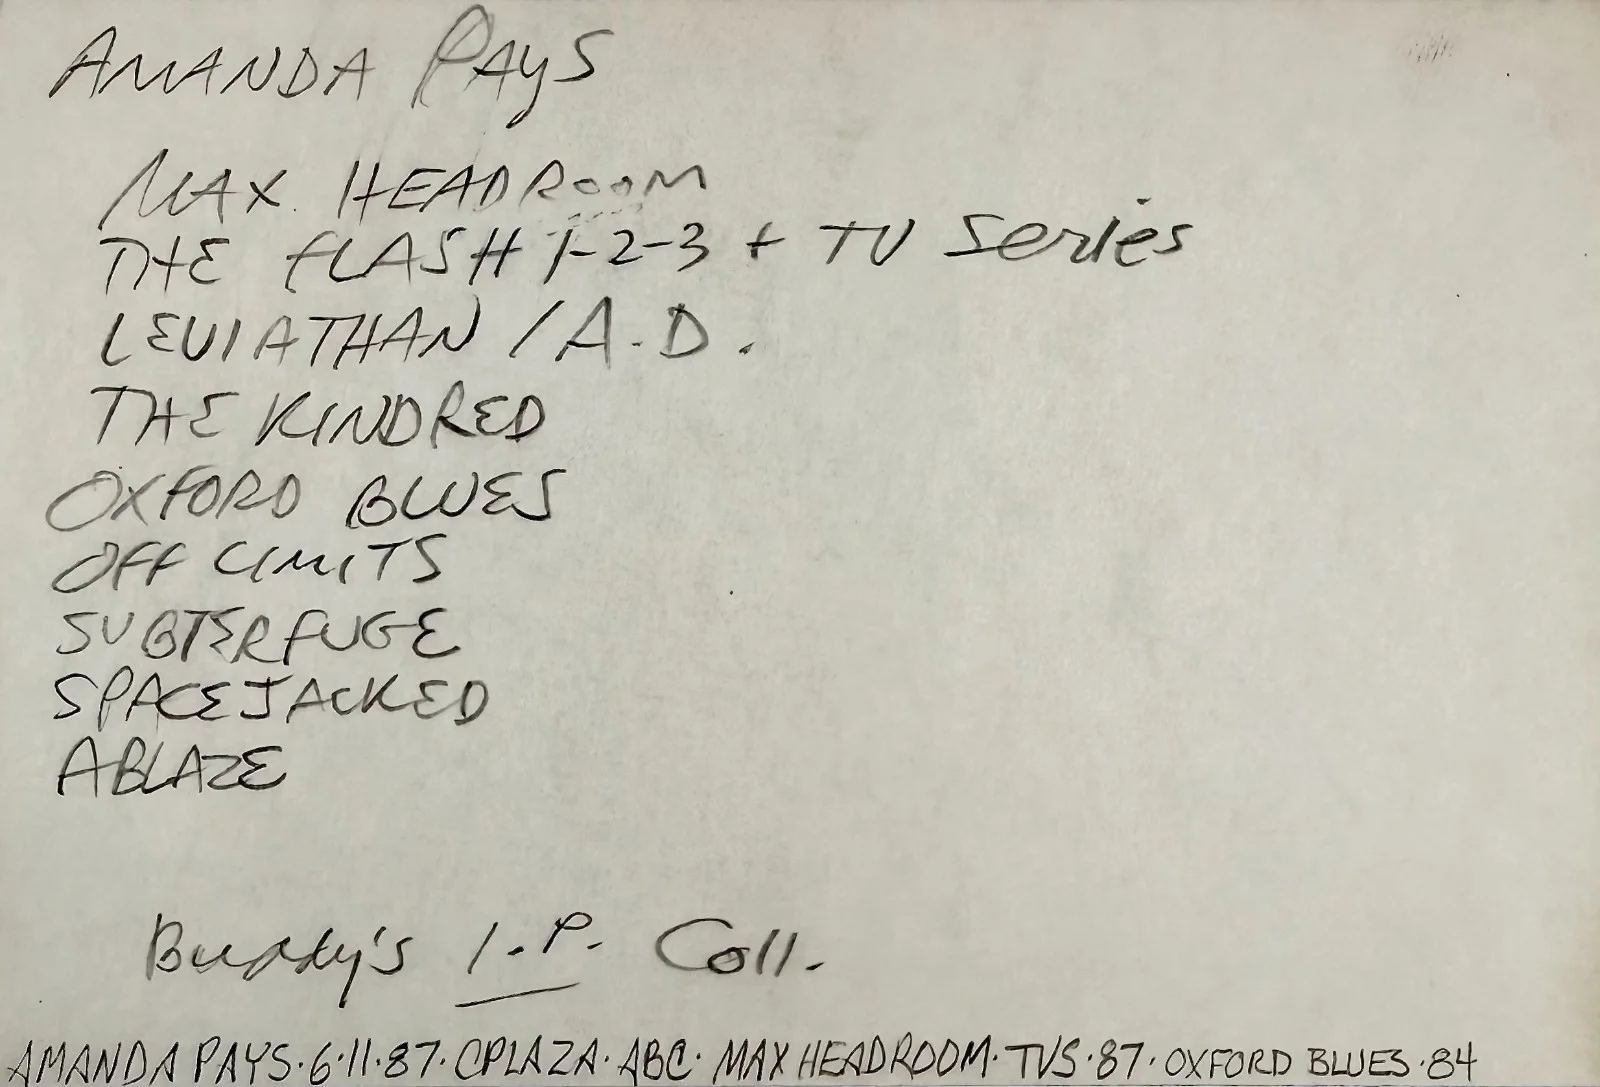 AMANDA PAYS
MAX HEADROOM
THE FLASH 1-2-3 + TV Series
LEVIATHAN / A.D.
THE KINDRED
OXFORD BLUES
OFF LIMITS
SUBTERFUGE
SPACEJACKED
ABLAZE
Buddy's I.P. Coll.
AMANDA PAYS·6·11·87·CPLAZA·ABC·MAX HEADROOM·TVS·87·OXFORD BLUES·84